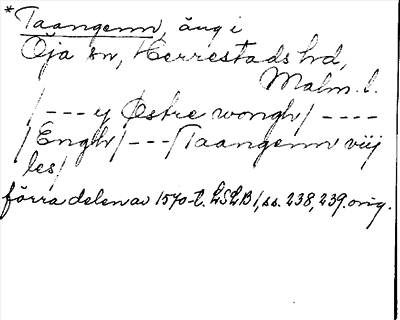 * Taangenn, äng i
Öja sn, Herrestads hd,
Malm. l.
/ - - - y Østre wongh / - - - -
/ Engh / - - - / Taangenn viij
les /
förra delen av 1570-t. LSLB 1, ss. 238, 239. orig.